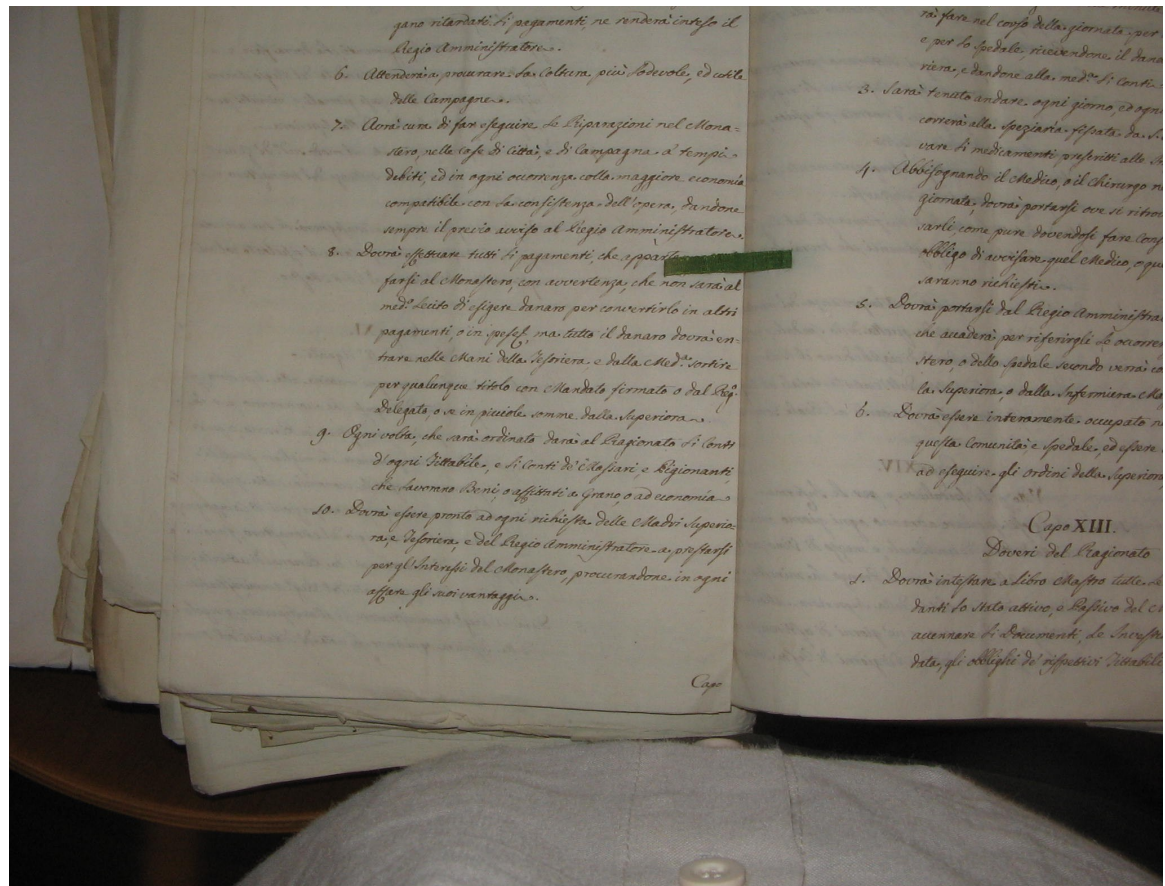 gano ritardati li pagamenti, ne renderà inteso il
Regio Amministratore.
6. Attenderà a procurare la Coltura più lodevole, ed utile
delle Campagne.
7. Avrà cura di far eseguire le Riparazioni nel Mona=
stero, nelle case di Città, e di Campagna a tempi
debiti, ed in ogni occorrenza colla maggiore economia
compatibile con la consistenza dell'opera, dandone
sempre il previo avviso al Regio Amministratore.
8. Dovrà effettuare tutti li pagamenti, che
farsi al Monastero, con avvertenza, che non sarà al
med.º lecito di esigere danaro per convertirlo in altri
pagamenti, o in spese, ma tutto il danaro dovrà en=
trare nelle Mani della Tesoriera, e dalla Med.ª sortire
per qualunque titolo con Mandato firmato o dal Reg.º
Delegato, o se in picciole somme dalla Superiora.
9. Ogni volta, che sarà ordinato darà al Ragionato li Conti
d'ogni Fittabile, e li Conti de' Masiari, e Pigionanti,
che lavorano Beni, o affittati a Grano, o ad economia.
10. Dovrà essere pronto ad ogni richiesta delle Madri Superio=
ra, e Tesoriera, e del Regio Amministratore a prestarsi
per gl'Interessi del Monastero, procurandone in ogni
affare gli suoi vantaggi.
Capo
rà fare nel corso della giornata per
e per lo spedale, ricevendone il dana
riera, e dandone alla med.ª li Conti
3. Sarà tenuto andare ogni giorno, ed ogni
correrà alla speziaria fissata da
vare li medicamenti prescritti alle
4. Abbisognando il Medico, o il Chirurgo n
giornata, dovrà portarsi ove si ritrov
varli, come pure dovendosi fare Cons
obbligo di avvisare quel Medico, o que
saranno richiesti.
5. Dovrà portarsi dal Regio Amministra
che accaderà per riferirgli le occorren
stero, o dello spedale secondo verrà co
la Superiora, o dalla Infermiera M
6. Dovrà essere interamente occupato n
questa Comunità e spedale, ed essere
ad eseguire gli ordini della Superiora
Capo XIII.
Doveri del Ragionato
1. Dovrà intestare a Libro Mastro tutte le
danti lo stato attivo, e Passivo del M
accennare li Documenti, le Investi
data, gli obblighi de' rispettivi Fittabile